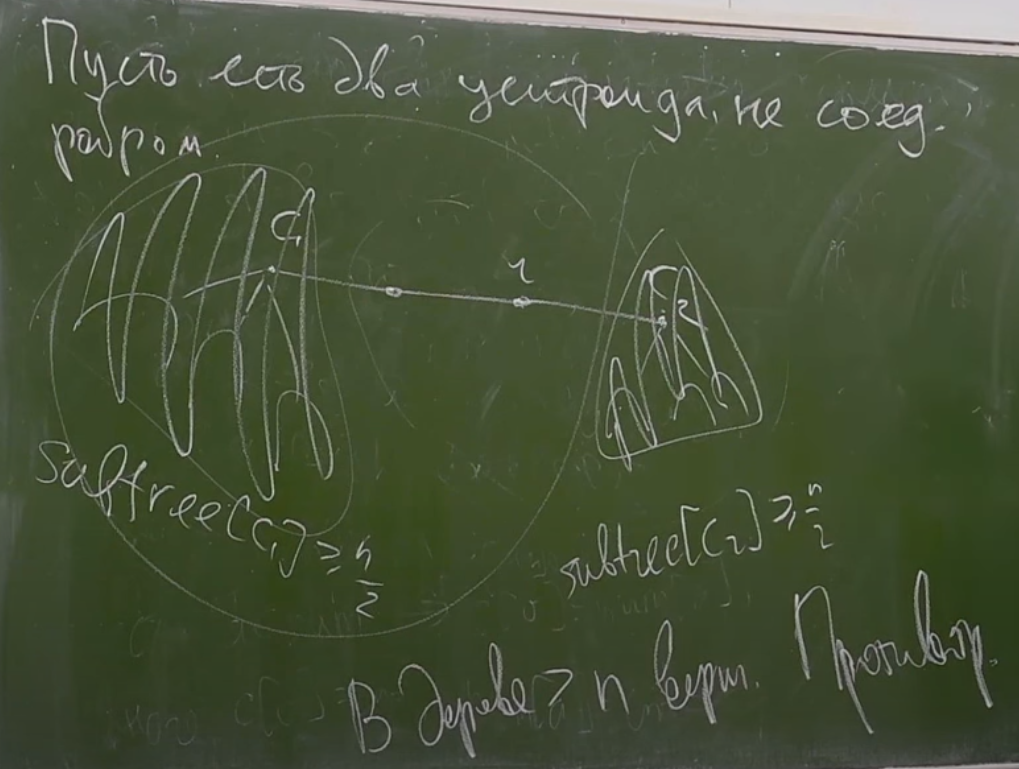 Пусть есть два центроида, не соед.
ребром.
C₁
r
C₂
subtree[C₁] ≥ n/2
subtree[C₂] ≥ n/2
В дереве > n верш. Противор.